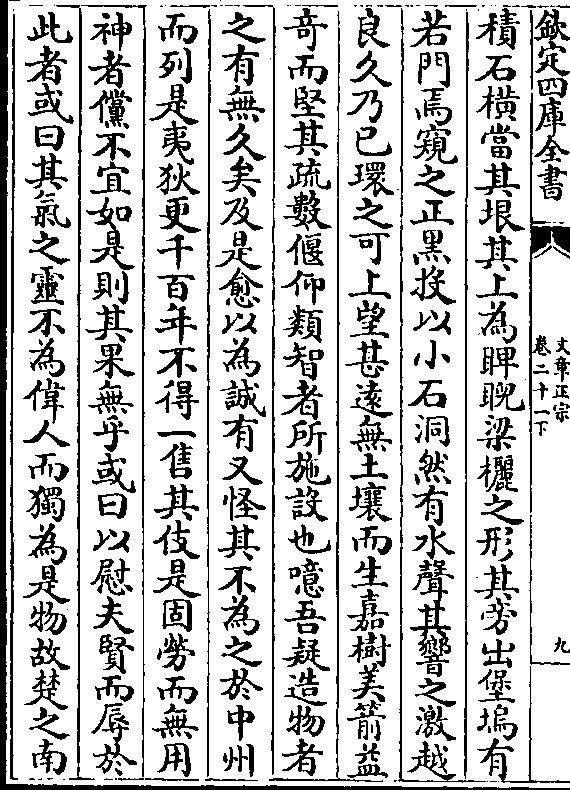 欽定四庫全書
文章正宗
卷二十一下
九
積石橫當其垠其上為睥睨梁欐之形其旁出堡塢有
若門焉窺之正黑投以小石洞然有水聲其響之激越
良久乃已環之可上望甚遠無土壤而生嘉樹美箭益
奇而堅其疏數偃仰類智者所施設也噫吾疑造物者
之有無久矣及是愈以為誠有又怪其不為之於中州
而列是夷狄更千百年不得一售其伎是固勞而無用
神者儻不宜如是則其果無乎或曰以慰夫賢而辱於
此者或曰其氣之靈不為偉人而獨為是物故楚之南